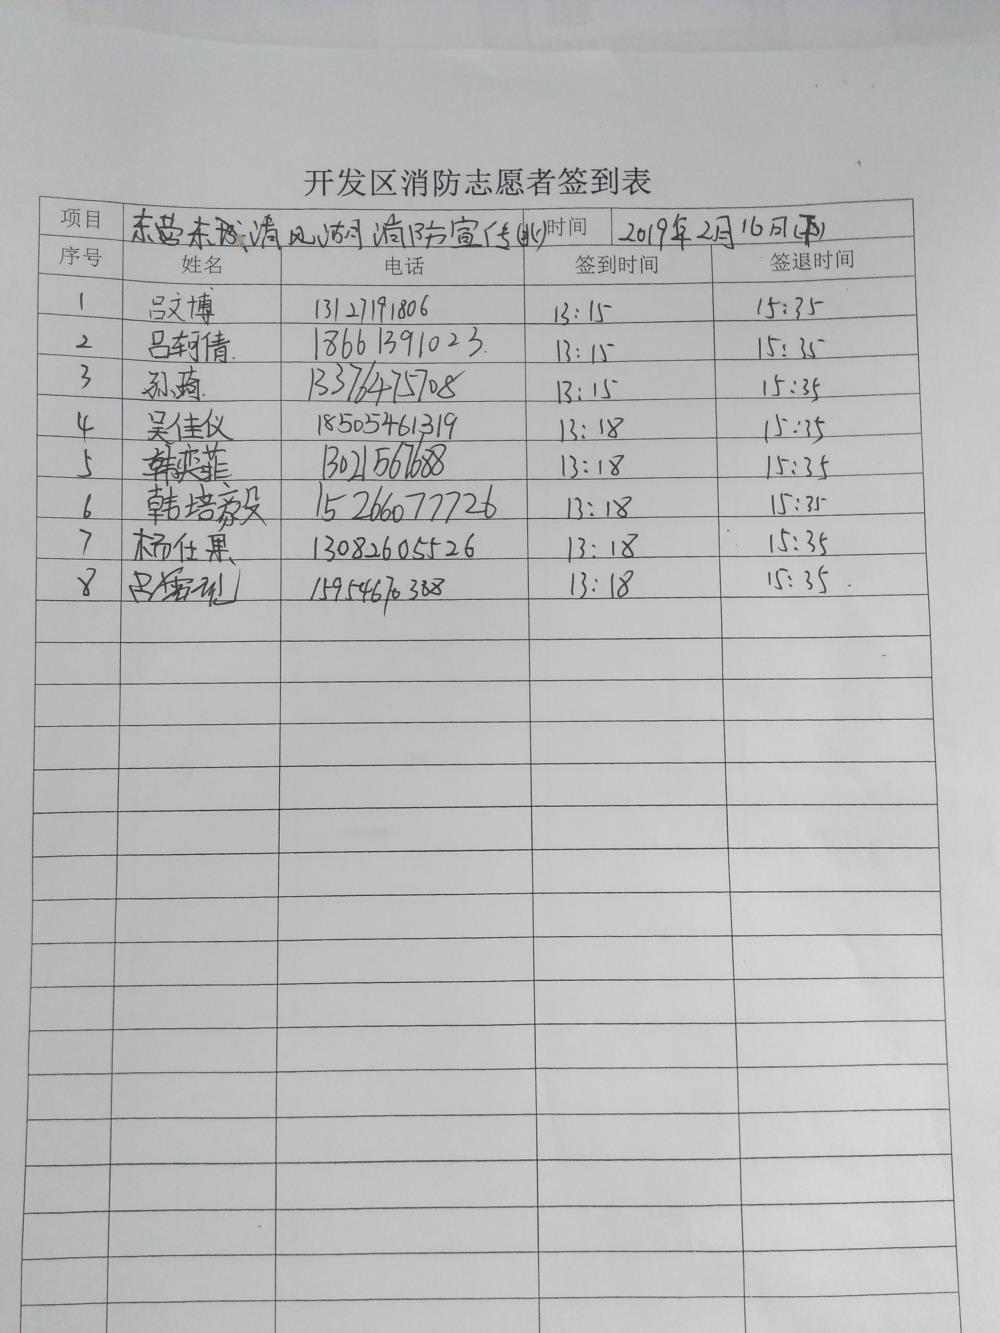 开发区消防志愿者签到表
项目 东营东城清风湖消防宣传 时间 2019年2月16日
序号 姓名 电话 签到时间 签退时间
1 吕文博 13127191806 13:15 15:35
2 吕轲倩 18661391023 13:15 15:35
3 孙 13376475708 13:15 15:35
4 吴佳仪 18505461319 13:18 15:35
5 韩奕菲 13021567688 13:18 15:35
6 韩培毅 15266077726 13:18 15:35
7 杨仕果 13082605526 13:18 15:35
8 吕 15954670308 13:18 15:35